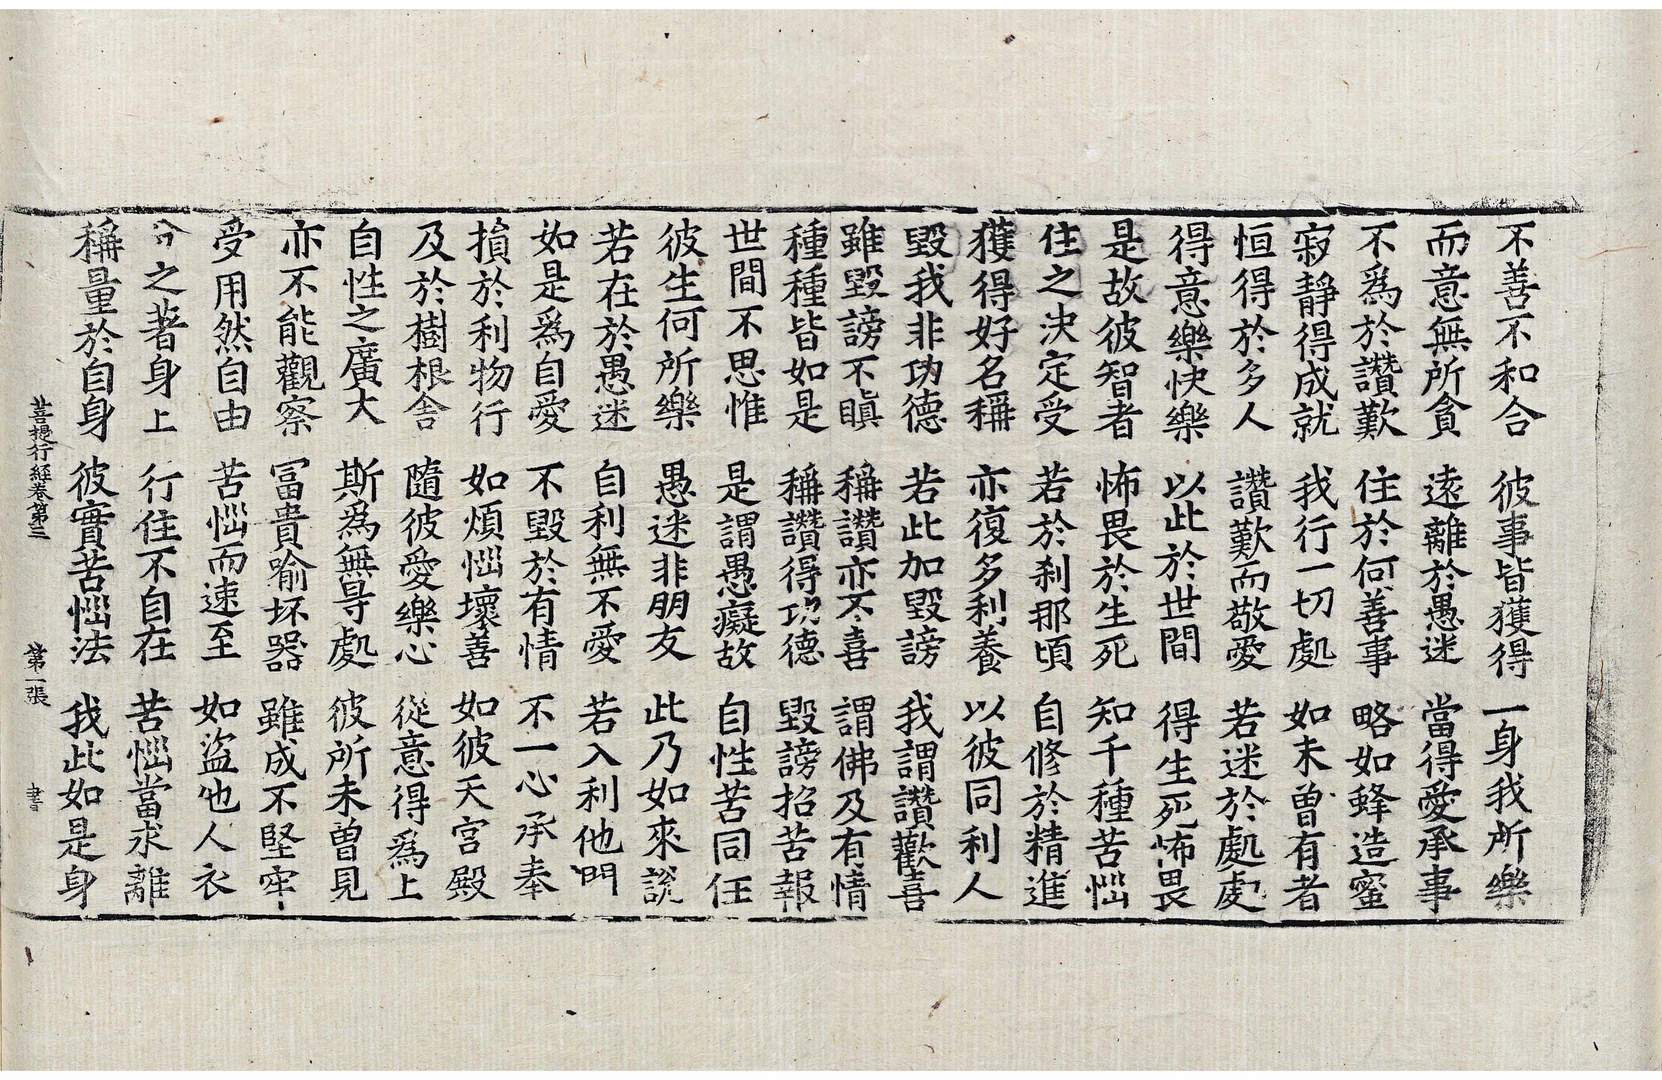 不善不和合　彼事皆獲得　一身我所樂
而意無所貪　遠離於愚迷　當得愛承事
不爲於讚歎　住於何善事　略如蜂造蜜
寂靜得成就　我行一切處　如未曾有者
恒得於多人　讚歎而敬愛　若迷於處處
得意樂快樂　以此於世間　得生死怖畏
是故彼智者　怖畏於生死　知千種苦惱
住之決定受　若於剎那頃　自修於精進
獲得好名稱　亦復多利養　以彼同利人
毀我非功德　若此加毀謗　我謂讚歡喜
雖毀謗不瞋　稱讚亦不喜　謂佛及有情
種種皆如是　稱讚得功德　毀謗招苦報
世間不思惟　是謂愚癡故　自性苦同任
彼生何所樂　愚迷非朋友　此乃如來説
若在於愚迷　自利無不愛　若入利他門
如是爲自愛　不毀於有情　不一心承奉
損於利物行　如煩惱壞善　如彼天宮殿
及於樹根舍　隨彼愛樂心　從意得爲上
自性之廣大　斯爲無㝵處　彼所未曾見
亦不能觀察　冨貴喻坏器　雖成不堅牢
受用然自由　苦惱而速至　如盜他人衣
分之著身上　行住不自在　苦惱當求離
稱量於自身　彼實苦惱法　我此如是身
菩提行經卷第三　第一張　書